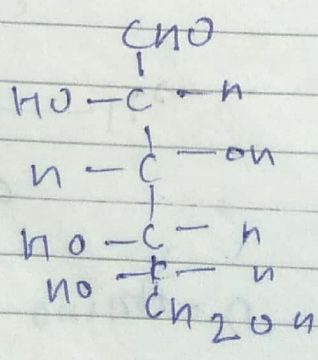 CHO
HO-C-H
H-C-OH
HO-C-H
HO-C-H
CH2OH